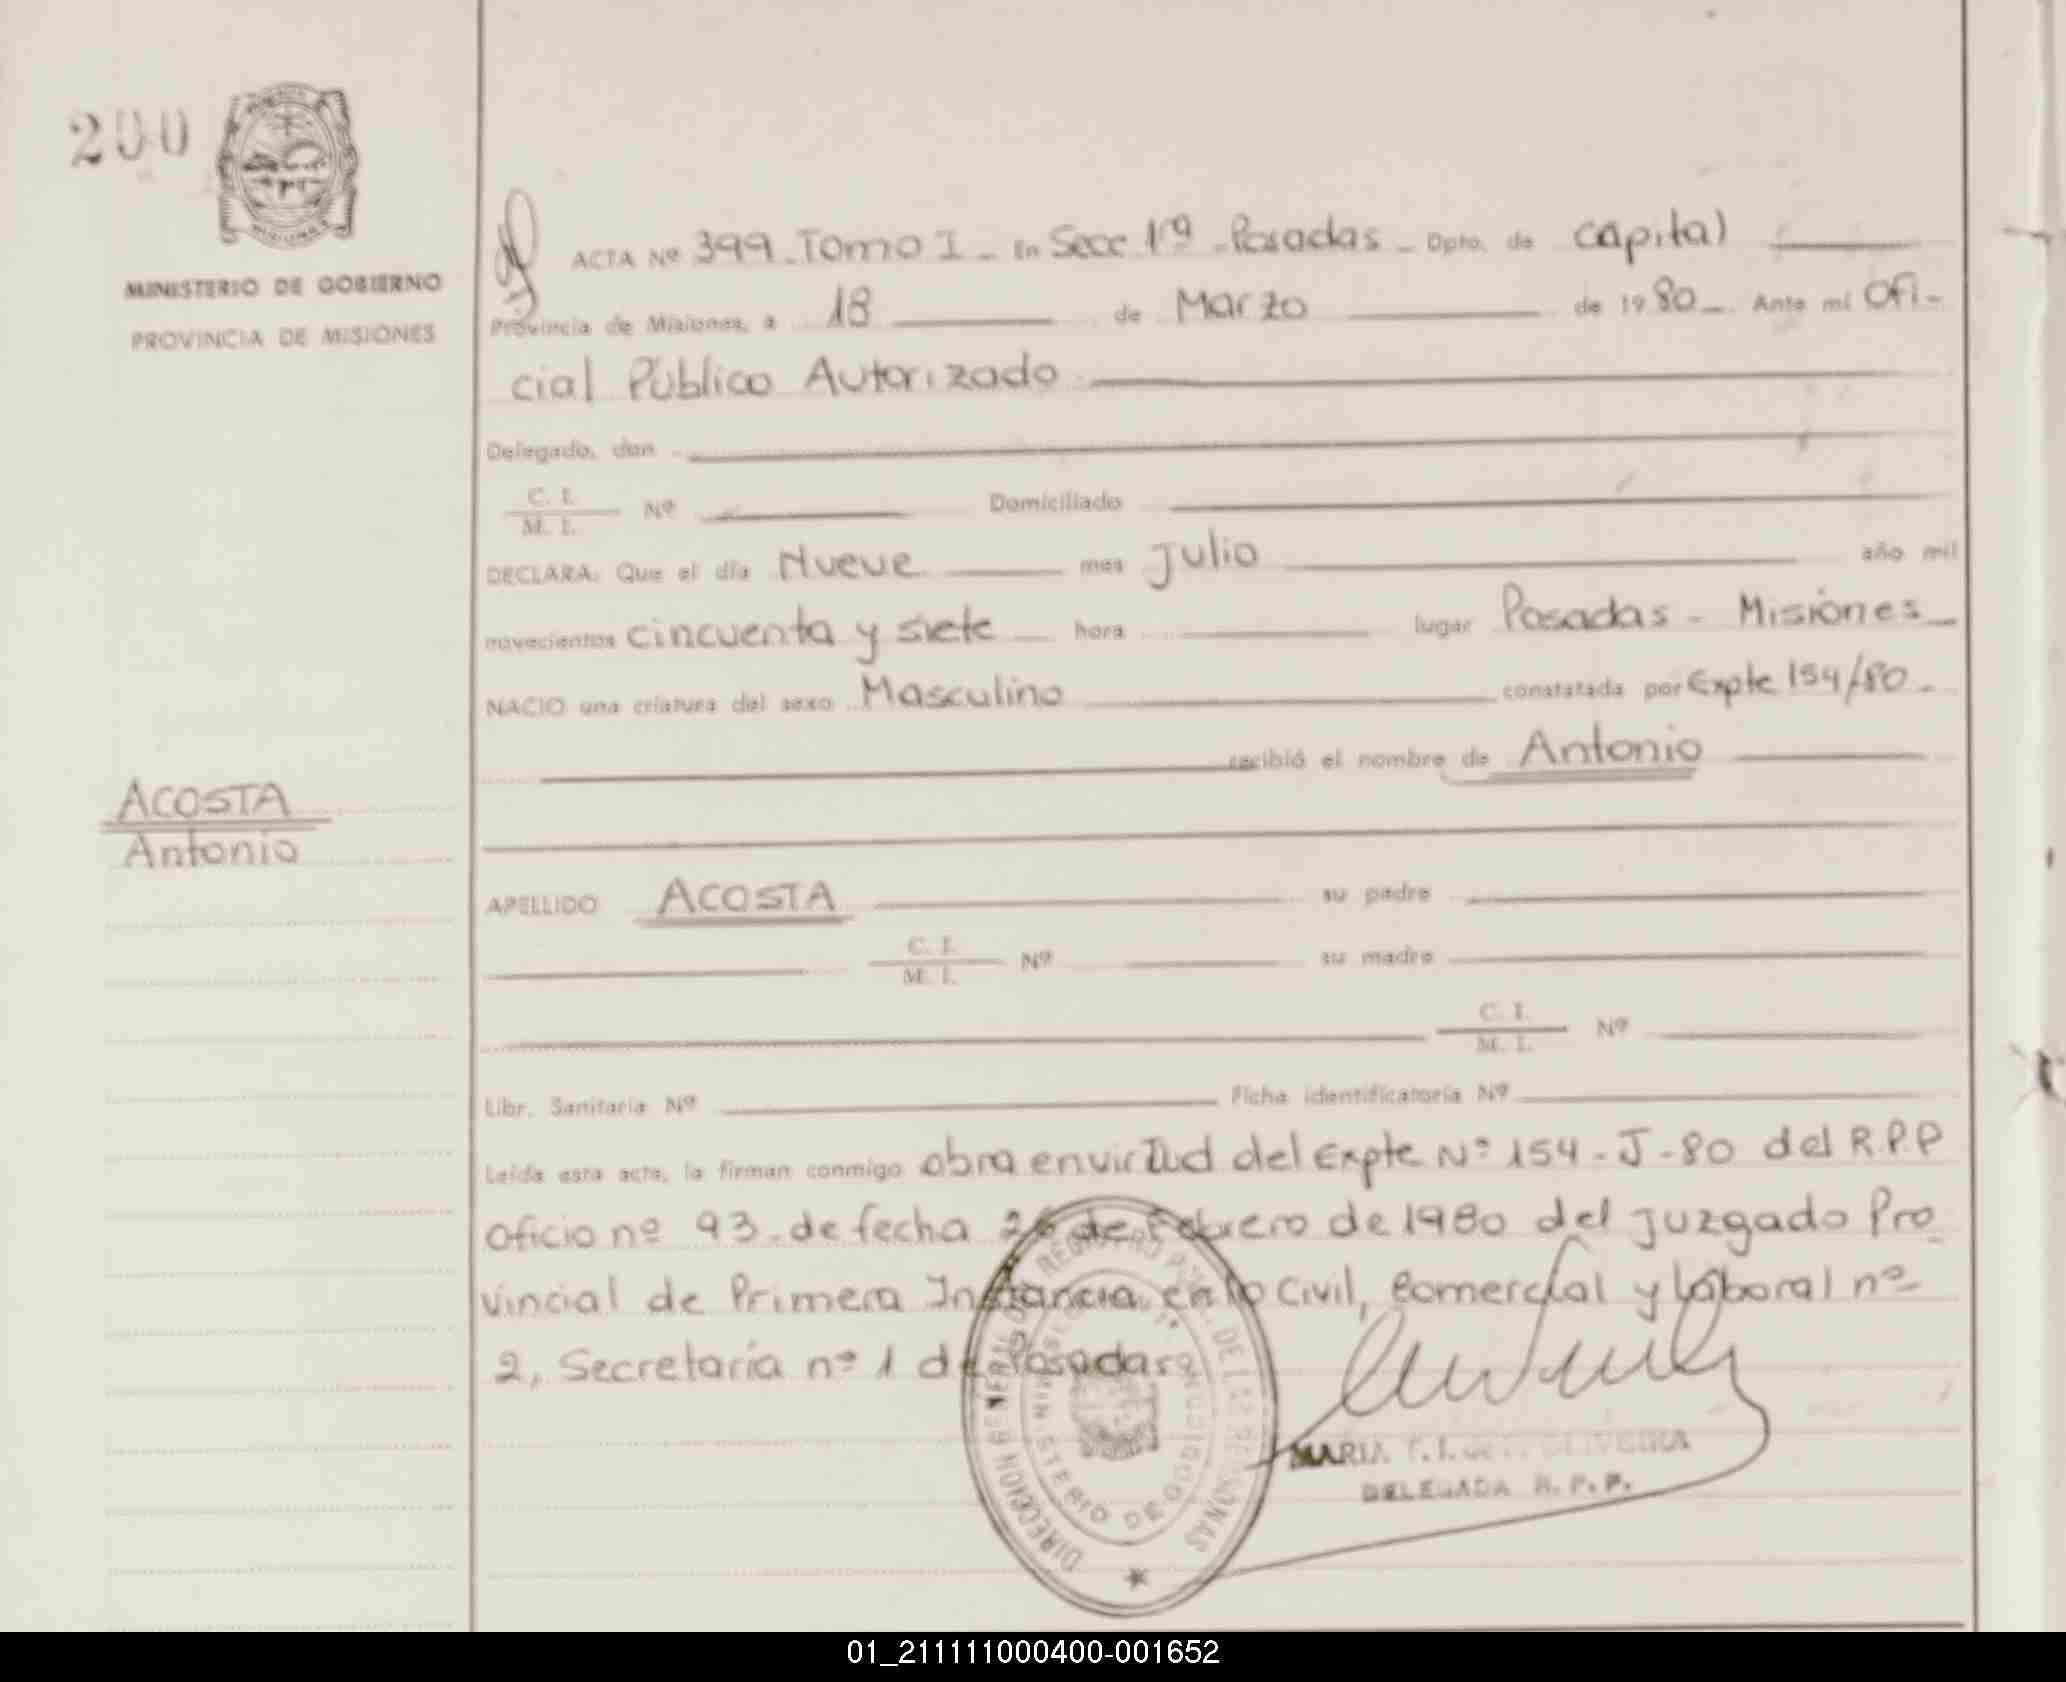 200
MINISTERIO DE GOBIERNO
PROVINCIA DE MISIONES
ACOSTA
Antonio
ACTA Nº 399 - Tomo I - En Secc 1ª - Posadas - Dpto. de Capital
Provincia de Misiones, a 18 de Marzo de 1980 - Ante mí Ofi-
cial Público Autorizado
Delegado, don
C. I.
M. I. Nº Domiciliado
DECLARA: Que el día Nueve mes Julio año mil
novecientos cincuenta y siete hora lugar Posadas - Misiones
NACIO una criatura del sexo Masculino constatada por Expte 154/80 -
recibió el nombre de Antonio
APELLIDO ACOSTA su padre
C. I.
M. I. Nº su madre
C. I.
M. I. Nº
Libr. Sanitaria Nº Ficha identificatoria Nº
Leída esta acta, la firman conmigo obra en virtud del Expte Nº 154 - J - 80 del R.P.P
Oficio nº 93 - de fecha de Febrero de 1980 del Juzgado Pro
vincial de Primera Instancia en lo Civil, Comercial y Laboral nº
2, Secretaría nº 1 de Posadas
DIRECCION GENERAL DEL REGISTRO DE LAS PERSONAS
MINISTERIO DE GOBIERNO
MARIA T. I. de OLIVEIRA
DELEGADA R. P. P.
01_211111000400-001652